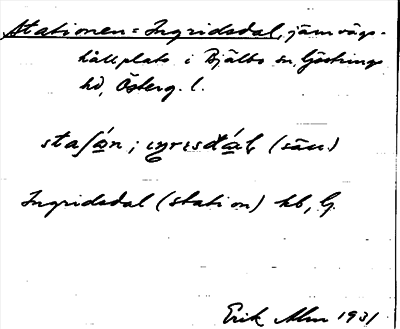 Stationen = Ingridsdal, järnvägs-
hållplats i Bjälbo sn, Göstrings
hd, Österg. l.
staʃán; iŋrisdál, (sän)
Ingridsdal (station) kb, G.
Erik Alm 1931